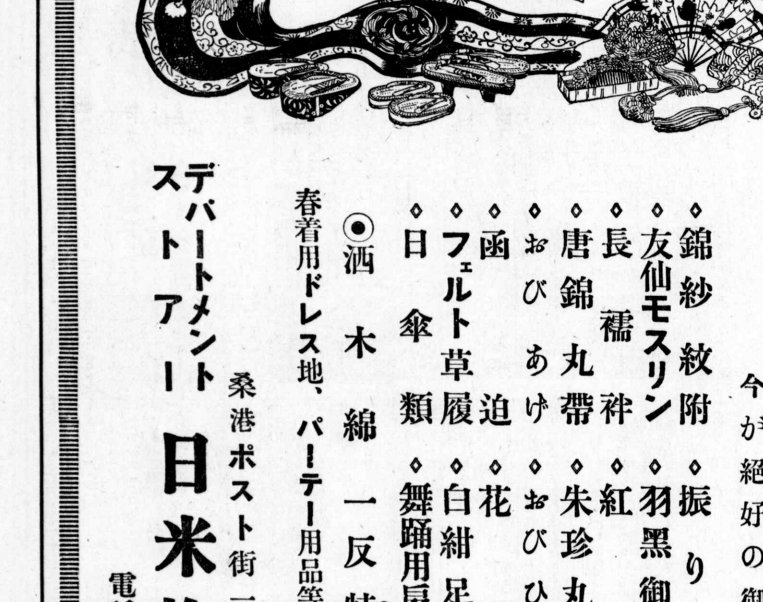 今が絶好の御
◇錦紗紋附◇振り
◇友仙モスリン◇羽黑御
◇長襦袢◇紅
◇唐錦丸帶◇朱珍丸
◇おびあげ◇おびひ
◇函迫◇花
◇フェルト草履◇白紺足
◇日傘類◇舞踊用扇
◉洒木綿一反
春着用ドレス地、パーテー用品等
桑港ポスト街一
デパートメント
ストアー
日米
電